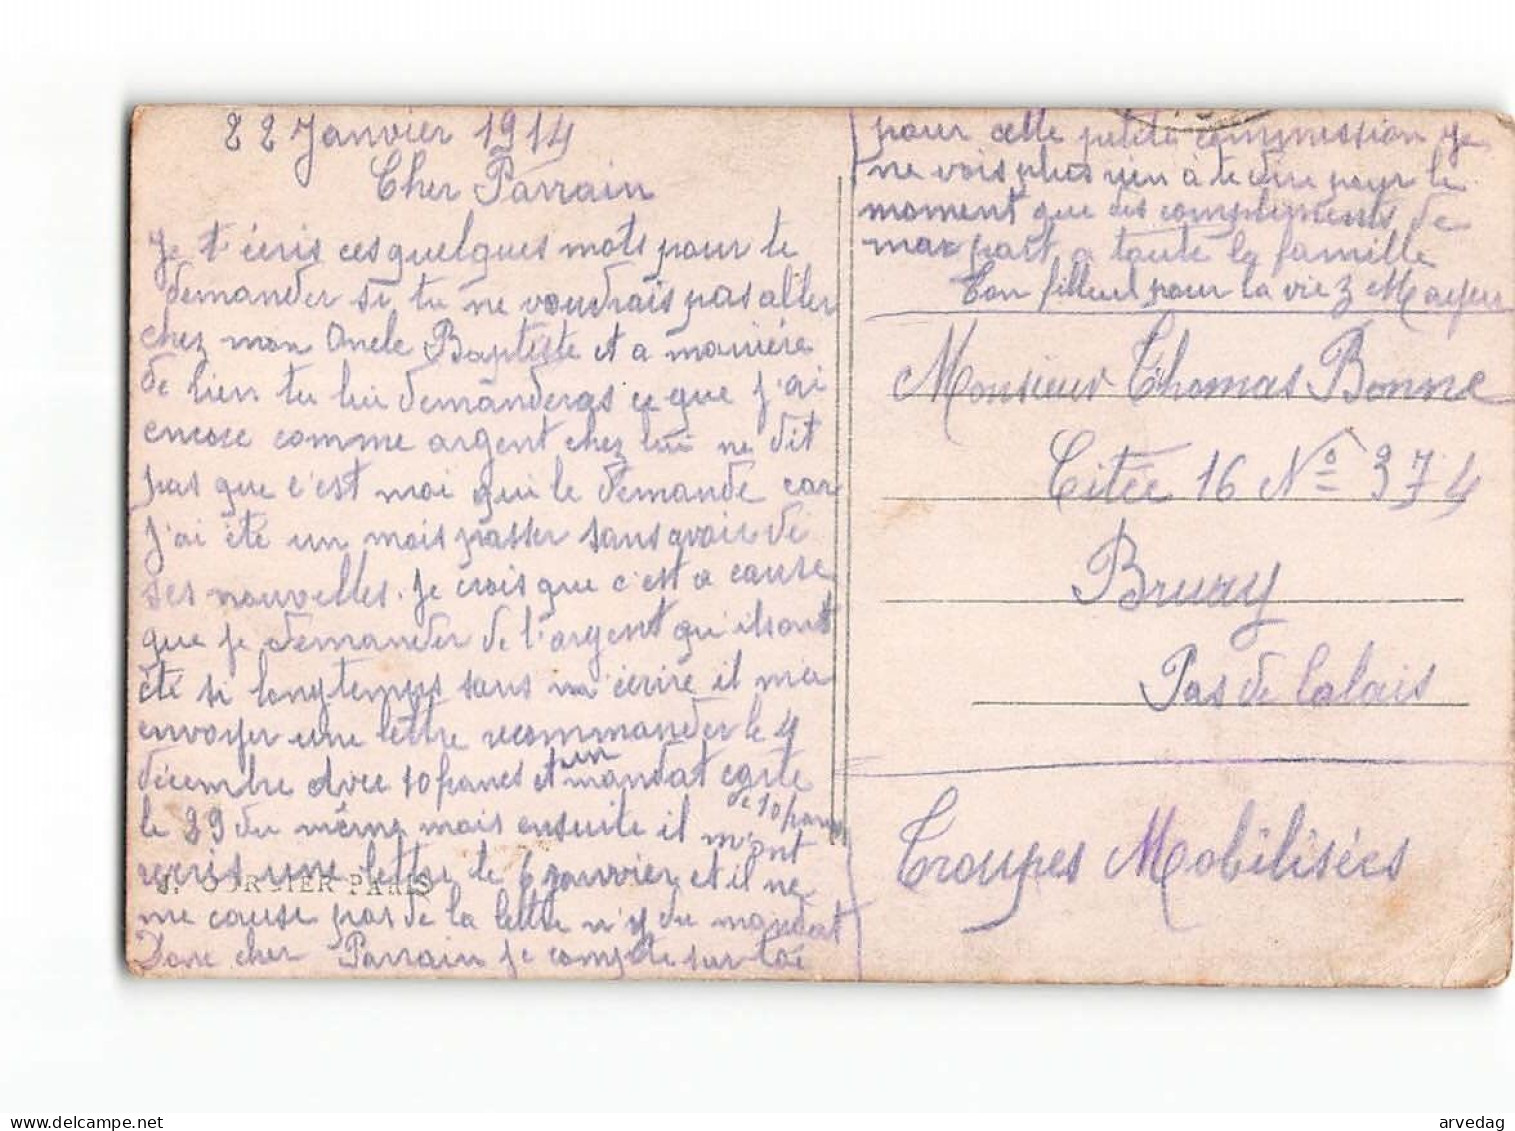 22 Janvier 1914
Cher Parrain
Je t'écris ces quelques mots pour te
demander si tu ne voudrais pas aller
chez mon Oncle Baptiste et a manière
de rien tu lui demanderas ce que j'ai
encore comme argent chez lui ne dit
pas que c'est moi qui le demande car
j'ai été un mois passer sans avoir de
ses nouvelles. Je crois que c'est a cause
que je demander de l'argent qu'ils ont
été si longtemps sans m'écrire il m'a
envoyer une lettre recommander le 4
décembre avec 10 francs et un mandat carte
de 10 francs
le 29 du même mais ensuite il m'ont
recris une lettre le 6 janvier et il ne
me cause pas de la lettre n'y du mandat
Donc cher Parrain je compte sur toi
pour cette petite commession je
ne vois plus rien à te dire pour le
moment que des compliments de
ma part a toute la famille
Ton filleul pour la vie
Monsieur Thomas Bonne
Citée 16 Nº 374
Bruay
Pas de Calais
Troupes Mobilisées
FOURNIER PARIS
arvedag
delcampe.net